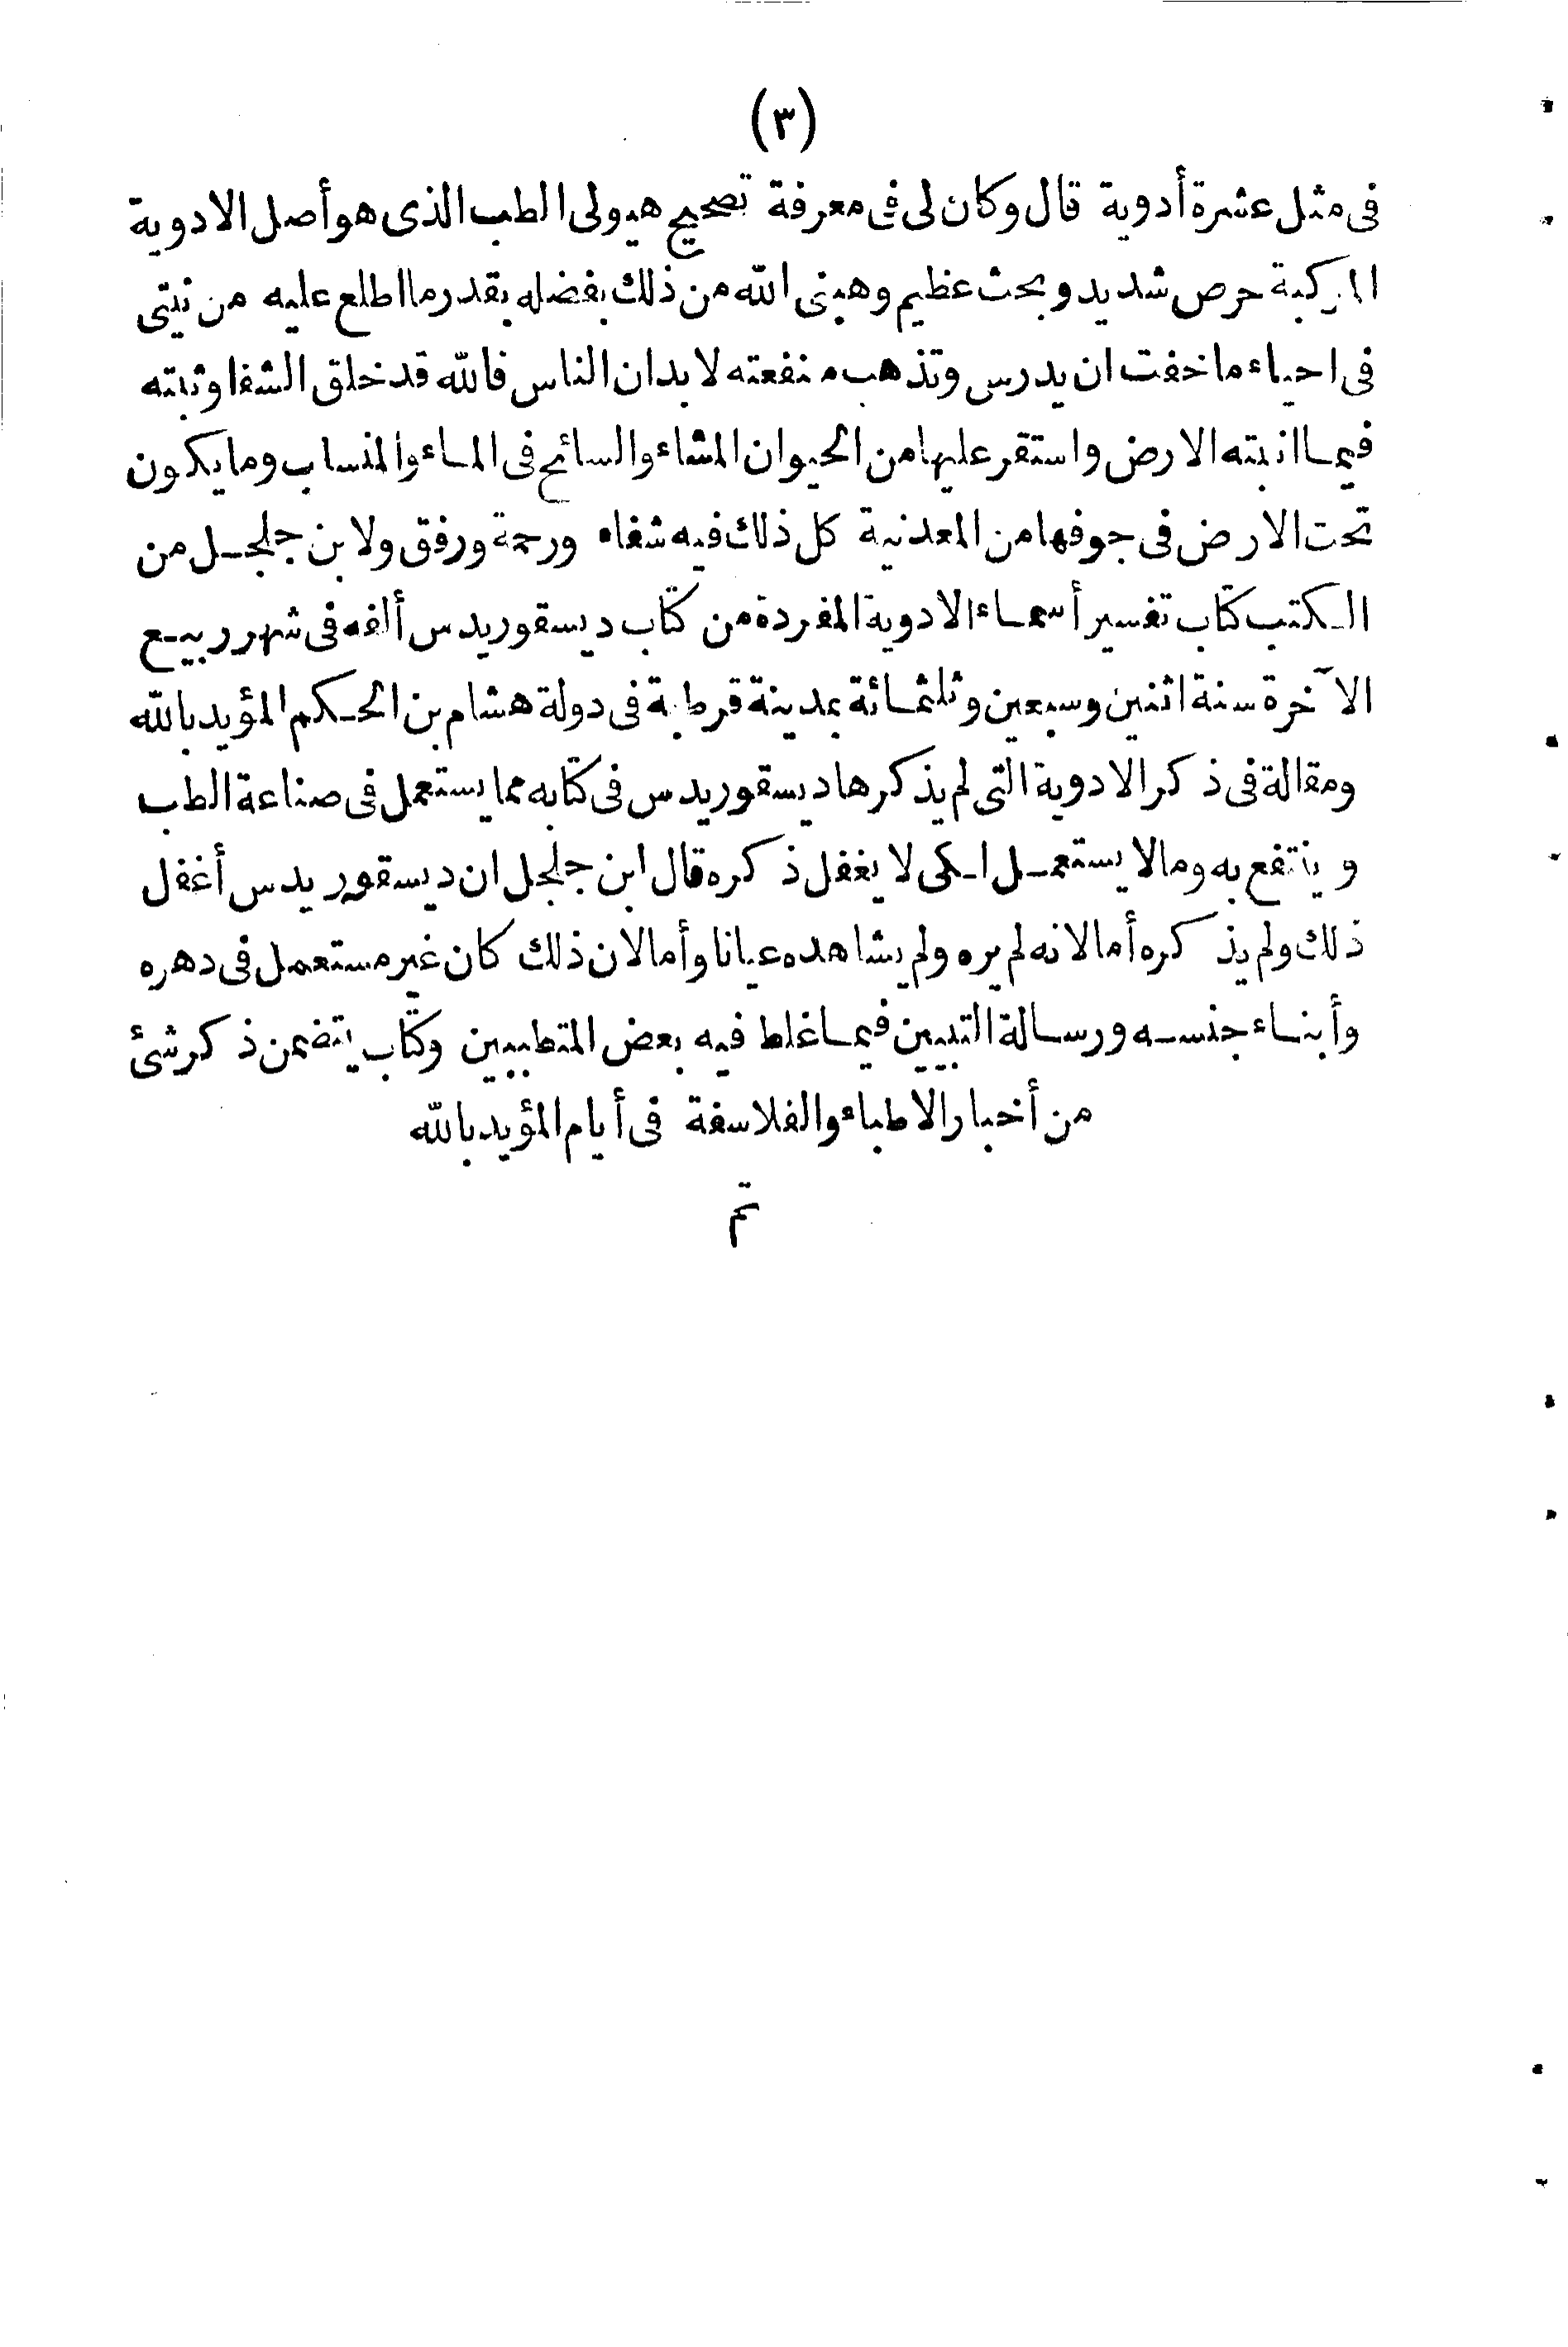 (٣)
فى مثل عشرة أدوية قال وكان لى فى معرفة تصحيح هيولى الطب الذى هو أصل الادوية
المركبة حرص شديد وبحث عظيم وهبنى الله من ذلك بفضله بقدر ما اطلع عليه من نيتى
فى احياء ما خفت ان يدرس وتذهب منفعته لابدان الناس فالله قد خلق الشفا وثبته
فيما انبته الارض واستقر عليها من الحيوان المشاء والسائح فى الماء والمنساب وما يكون
تحت الارض فى جوفها من المعدنية كل ذلك فيه شفاء ورحمة ورفق ولابن جلجل من
الكتب كتاب تفسير أسماء الادوية المفردة من كتاب ديسقوريدس ألفه فى شهر ربيع
الآخرة سنة اثنين وسبعين وثلثمائة بمدينة قرطبة فى دولة هشام بن الحكم المؤيد بالله
ومقالة فى ذكر الادوية التى لم يذكرها ديسقوريدس فى كتابه مما يستعمل فى صناعة الطب
وينتفع به وما لا يستعمل لكى لا يغفل ذكره قال ابن جلجل ان ديسقوريدس أغفل
ذلك ولم يذكره أما لانه لم يره ولم يشاهده عيانا وأما لان ذلك كان غير مستعمل فى دهره
وأبناء جنسه ورسالة التبيين فيما غلط فيه بعض المتطببين وكتاب يتضمن ذكر شئ
من أخبار الاطباء والفلاسفة فى أيام المؤيد بالله
تم